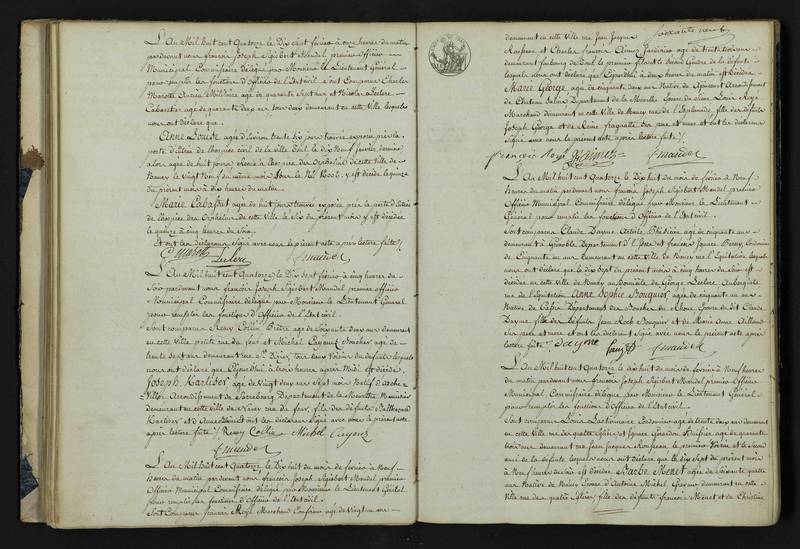 L'An Mil huit cent Quatorze le Dix Sept fevrier à onze heures du matin
pardevant nous françois Joseph Sigisbert Mandel premier Officier
Municipal Commissaire délégué par Monsieur le Lieutenant Général
pour remplir les fonctions d'Officier de l'Etat civil, ont Comparu Charles
Marotte Ancien Militaire agé de quarante Sept ans et Nicolas Leclere
Cabaretier agé de quarante deux ans tous deux demeurant en cette Ville lesquels
nous ont déclaré que
Anne Louise agée d'environ trente dix jours trouvée exposée près la
porte d'Entrée de l'hospice civil de la ville de Toul le dix Neuf janvier dernier
alors agée de huit jours à l'hospice des Orphelins de cette Ville de
Nancy le Vingt du même mois Sous le No. y est décédée le quinze
du présent mois à dix heures du matin
Marie Labastut agée de huit jours trouvée exposée près la porte d'Entrée
de l'hospice des Orphelins de cette Ville le Six du présent mois y est décédée
le quinze à cinq heures du Soir
et ont les déclarans Signé avec nous le présent acte après lecture faite
C. Marotte Leclere f. mandel
L'An Mil huit cent Quatorze le Dix Sept fevrier à cinq heures du
Soir pardevant nous françois Joseph Sigisbert Mandel premier Officier
Municipal Commissaire délégué par Monsieur le Lieutenant Général
pour remplir les fonctions d'Officier de l'Etat civil
Sont comparus Remy Collin agé de Soixante deux ans demeurant
en cette Ville petite rue du four et Michel Cayeux Boucher agé de
trente Sept ans demeurant rue St Dizier tous deux Voisins du défunt lesquels
nous ont déclaré que Cejourdhui à trois heures après Midi est décédé
Joseph Karliber agé de Vingt deux ans Sept mois Natif d'
Viller Arrondissement de Sarrebourg Département de la Meurthe Menuisier
demeurant en cette ville de Nancy rue du four, fils des défunts Balthazard
Karliber et d' et ont les déclarans Signé avec nous le présent acte
après lecture faite Remy Collin Michel Cayeux
f. mandel
L'An Mil huit cent Quatorze le Dix huit du mois de fevrier à Neuf
heures du matin pardevant nous françois Joseph Sigisbert Mandel premier
Officier Municipal Commissaire délégué par Monsieur le Lieutenant Général
pour remplir les fonctions d'Officier de l'Etat civil
Sont Comparus francois Royé Marchand Confiseur agé de Vingt un ans
Soixante neuf
demeurant en cette Ville rue Jean Jacques
Rousseau et Charles francois Aimez Jardinier agé de trente trois ans
demeurant faubourg de Toul le premier filleul le Second Gendre de la défunte
lesquels nous ont déclaré que Cejourdhui à deux heures du matin est décédée
Marie George agée de cinquante deux ans Native de Arrondissement
de Chateau Salins Département de la Meurthe Epouse du Sieur Louis Royé
Marchand demeurant en cette Ville de Nancy rue de l'Esplanade, fille des défunts
Joseph George et de Reine fragnatte Ses père et mère et ont les déclarans
Signé avec nous le présent acte après lecture faite
francois Royé f. mandel
L'An Mil huit cent Quatorze le Dix huit du mois de fevrier à Neuf
heures du matin pardevant nous francois Joseph Sigisbert Mandel premier
Officier Municipal Commissaire délégué par Monsieur le Lieutenant
Général pour remplir les fonctions d'Officier de l'Etat civil.
Sont comparus Claude Dayme Artiste agé de cinquante ans
demeurant à Grenoble Département de l'Isère et francois Ignace
de Cinquante six ans demeurant en cette ville de Nancy rue l'Equitation lesquels
nous ont déclaré que le dix Sept du présent mois à cinq heures du Soir est
décédée en cette Ville de Nancy au Domicile de George Leclere Aubergiste
rue de l'Equitation Anne Sophie Bouquier agée de cinquante un ans
Native de Département des Bouches du Rhone Epouse du dit Claude
Dayme, fille des défunts Jean Roch Bouquier et de Marie Anne
Ses père et mère et ont les déclarans Signé avec nous le présent acte après
lecture faite Dayme f. mandel
L'An Mil huit cent Quatorze le dix huit du mois de fevrier à Neuf heures
du matin pardevant nous francois Joseph Sigisbert Mandel premier Officier
Municipal Commissaire délégué par Monsieur le Lieutenant Général
pour remplir les fonctions d'Officier de l'Etat civil.
Sont comparus Louis Lachaumaire Cordonnier agé de trente deux ans demeurant
en cette Ville rue des quatre Eglises et Ignace Huissier agé de quarante
trois ans demeurant rue Jean Jacques Rousseau, le premier Voisin et le Second
ami de la défunte lesquels nous ont déclaré que le dix Sept du présent mois
à Neuf heures du Soir est décédée Barbe Menet agée de Soixante quatre
ans Native de Nancy Epouse d'Antoine Michel, Graveur demeurant en cette
Ville rue des quatre Eglises fille des défunts francois Menet et de Christine